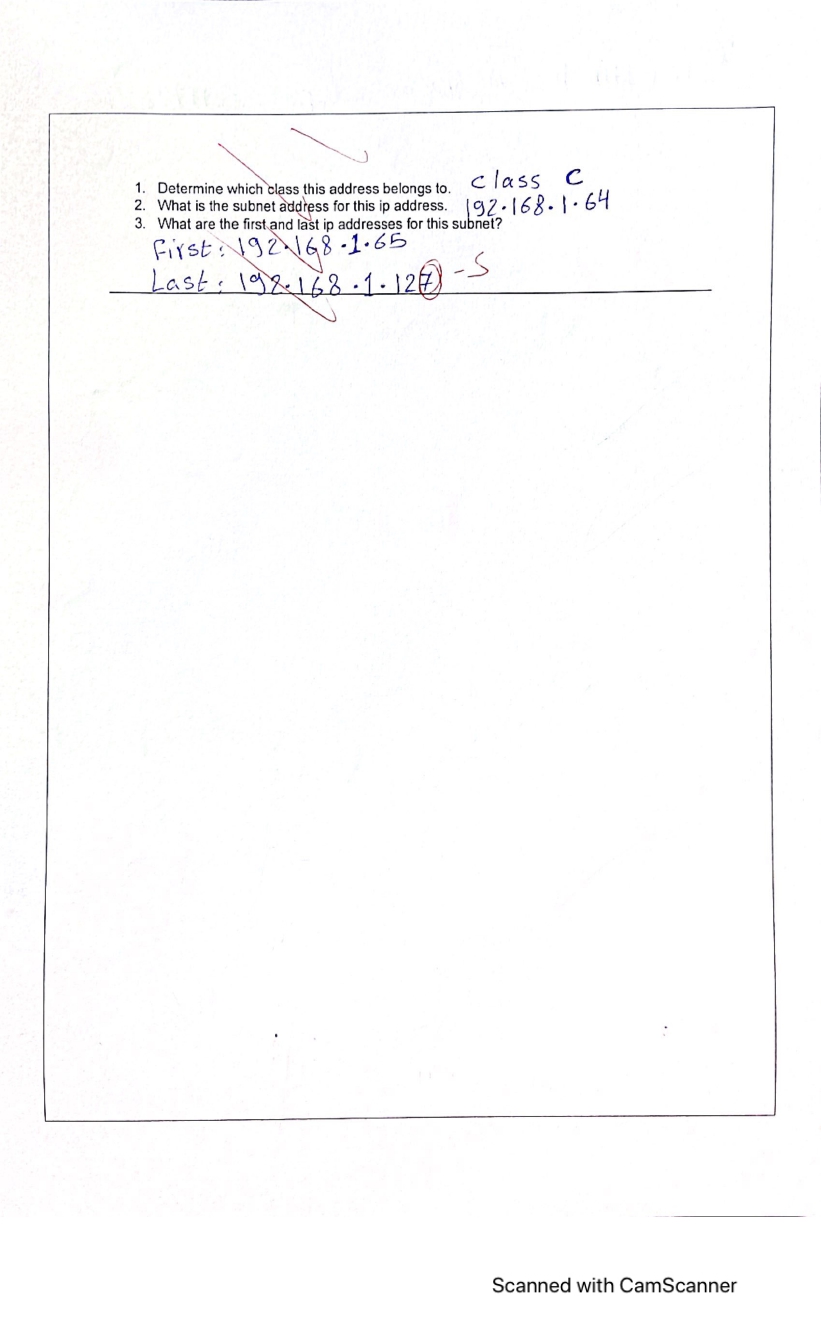 1. Determine which class this address belongs to. class C
2. What is the subnet address for this ip address. 192.168.1.64
3. What are the first and last ip addresses for this subnet?
First: 192.168.1.65
Last: 192.168.1.127 -5
Scanned with CamScanner